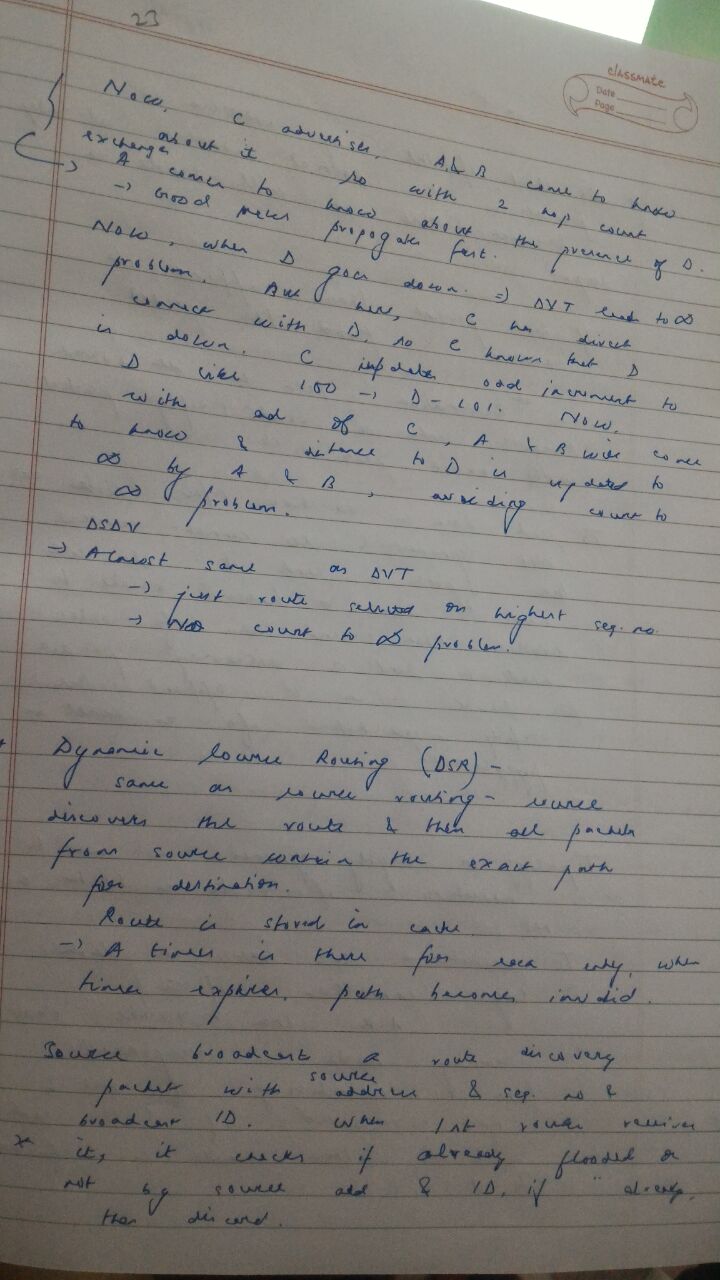 23
classmate
Date
Page
Now, C advertises, A & B come to know
about it so with 2 hop count
exchange
A comes to know about the presence of D.
-> Good news propogates fast.
Now, when D goes down. => DVT leads to ∞
problem. But here, C has direct
connect with D, so C knows that D
is down. C updates odd increment to
D like 100 -> D-101. Now,
with ad of C, A & B will come
to know & distance to D is updated to
∞ by A & B, avoiding count to
∞ problem.
DSDV
-> Almost same as DVT
-> just route selected on highest seq. no.
-> No count to ∞ problem.
Dynamic Source Routing (DSR) -
same as source routing - source
discovers the route & then all packets
from source contain the exact path
for destination.
Route is stored in cache
-> A timer is there for each entry, when
timer expires, path becomes invalid.
Source broadcast a route discovery
packet with source address & seq. no &
broadcast ID. When 1st router receives
* it, it checks if already flooded or
not by source add & ID, if " already,
then discard.